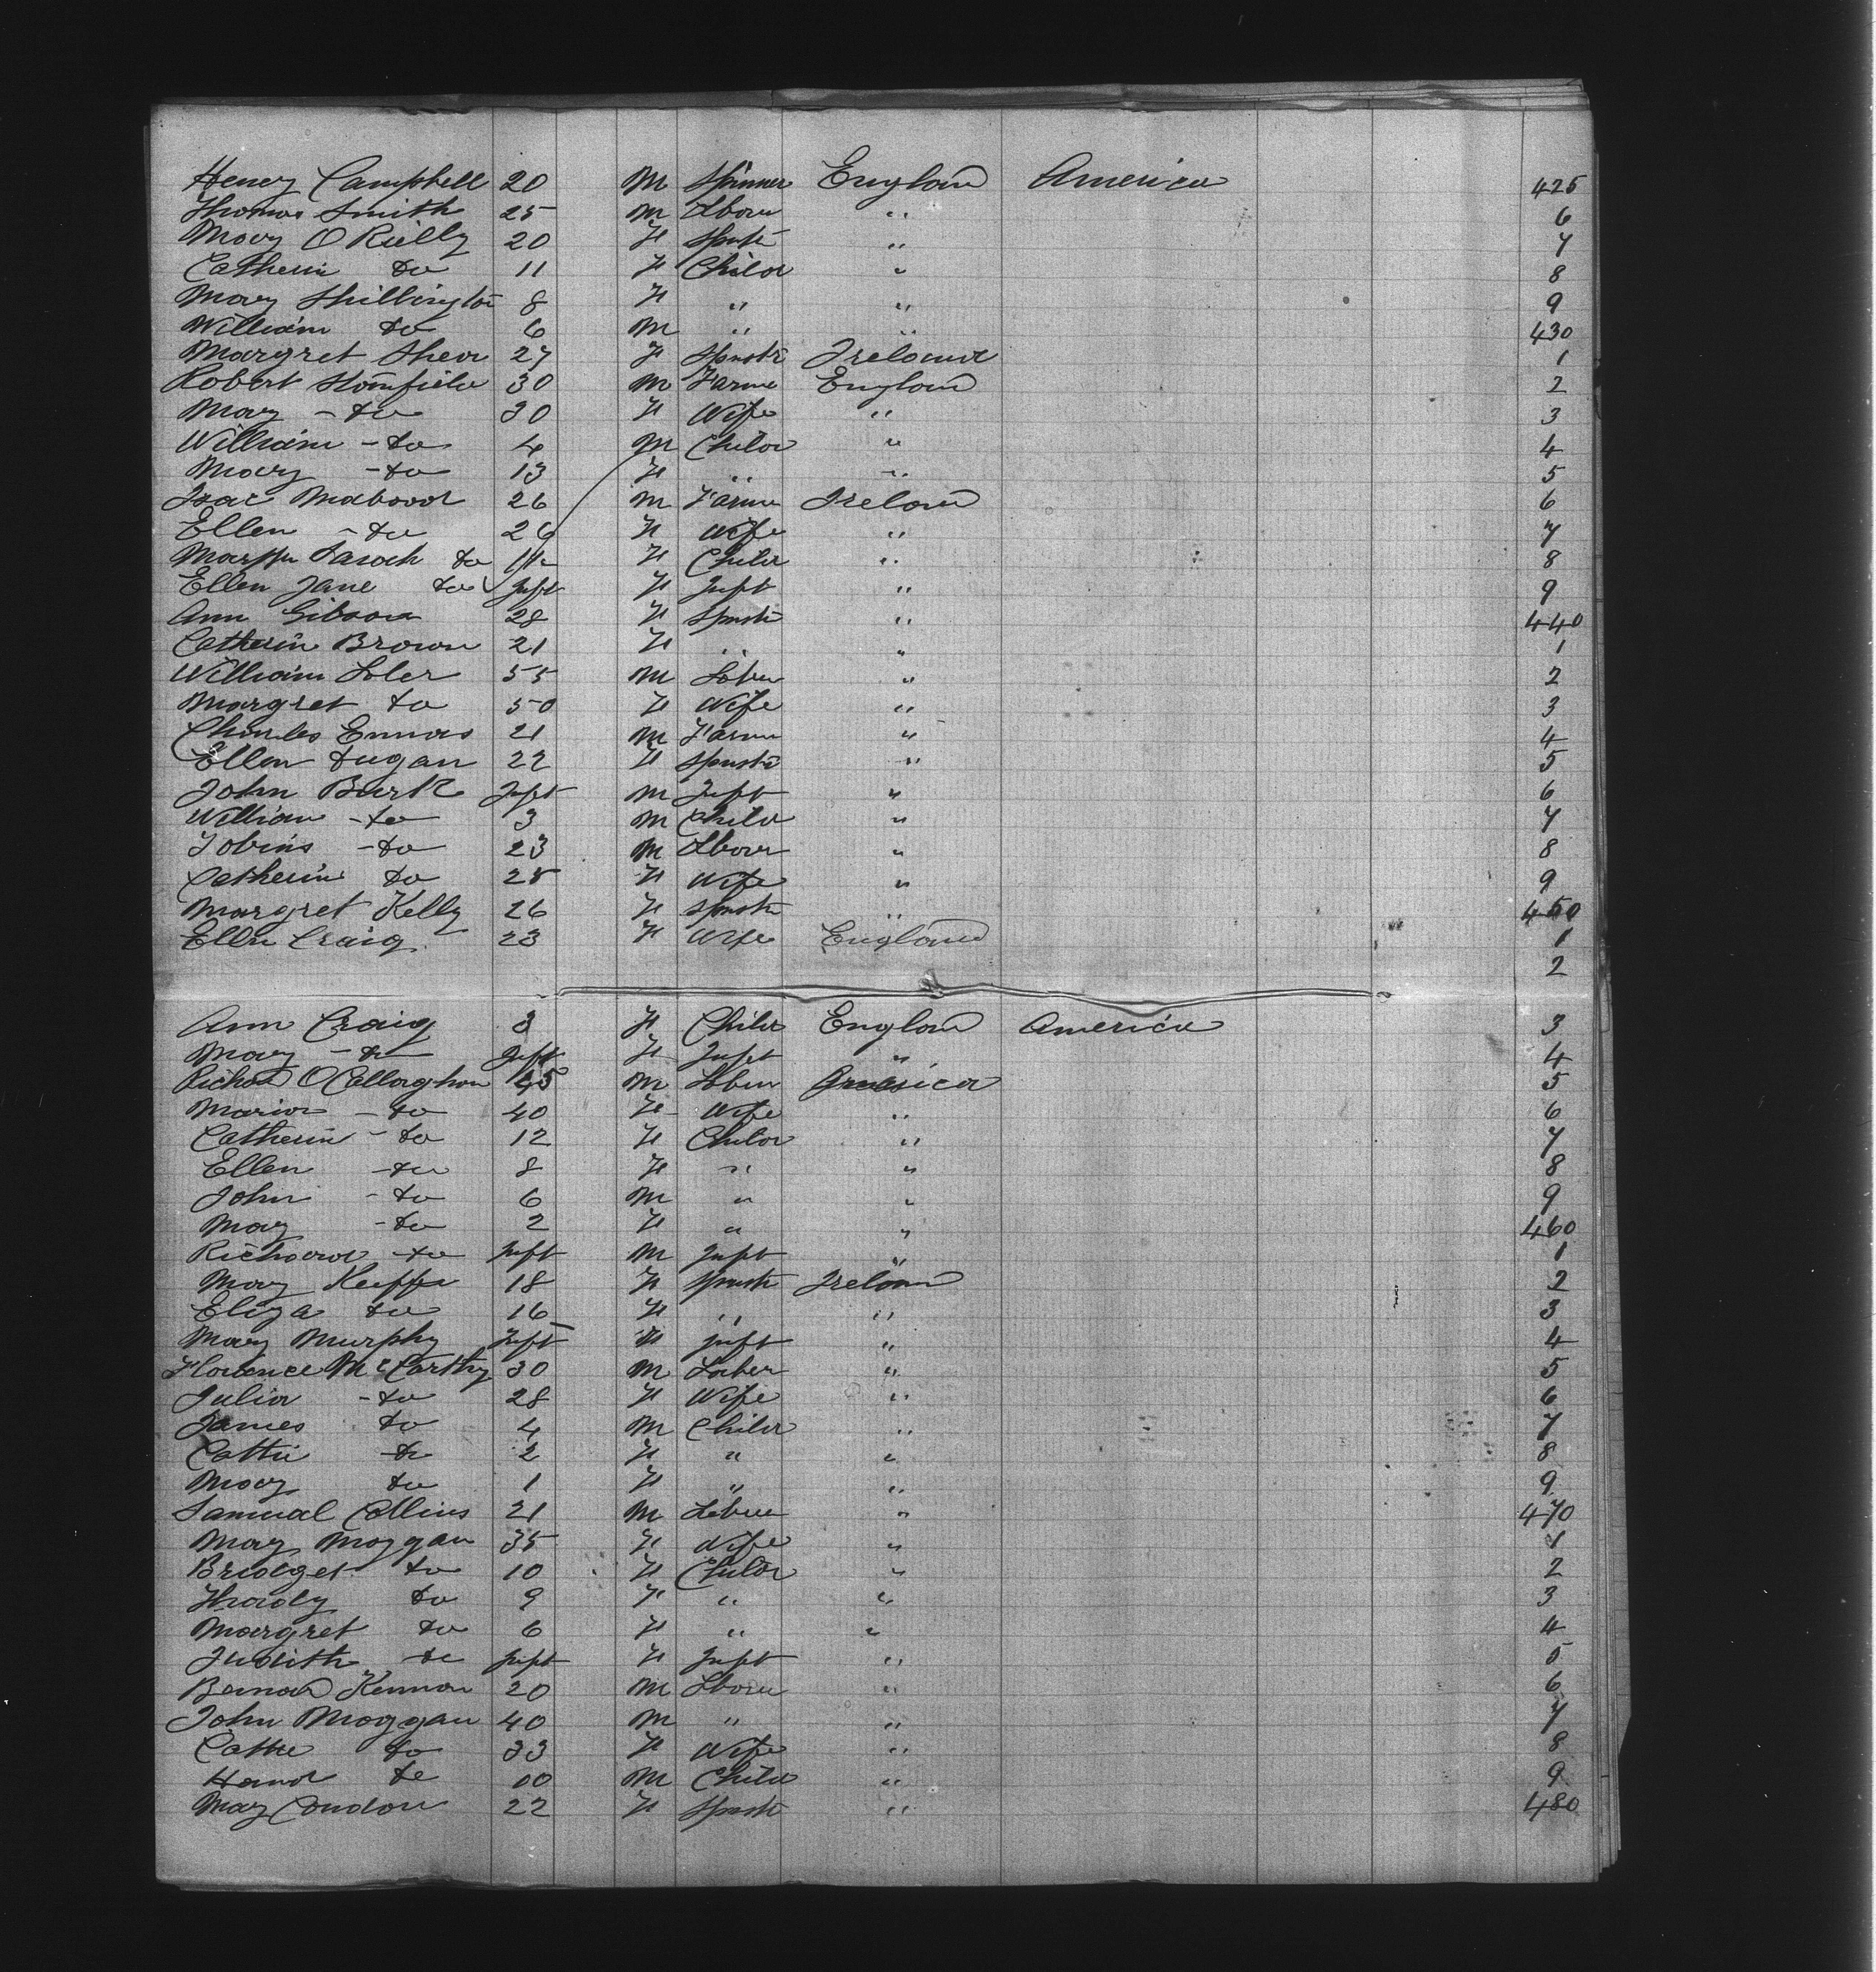 Henry Campbell 20 M Spinner England America 425
Thomas Smith 25 M Lbour " 6
Mary O Rielly 20 F Spinstr " 7
Catherin do 11 F Child " 8
Mary Shillington 8 F " " 9
William do 6 M " " 430
Margret Shea 27 F Spinstr Ireland 1
Robert 30 M Farme England 2
Mary - do 30 F Wife " 3
William - do 4 M Child " 4
Mary - do 13 F " " 5
Isac 26 M Farme Ireland 6
Ellen - do 26 F Wife " 7
Sarah do F Child " 8
Ellen Jane do Inft F Inft " 9
Ann Gibson 28 F Spinstr " 440
Catherin Brown 21 F " " 1
William 55 M Laber " 2
Margret do 50 F Wife " 3
Charles Ennis 21 M Farme " 4
Ellen Dugan 22 F Spinstr " 5
John Burk Inft M Inft " 6
William - do 3 M Child " 7
Tobins - do 23 M Lbour " 8
Catherin do 25 F Wife " 9
Margret Kelly 26 F Spinstr " 450
Ellen Craig 23 F Wife England 1
2
Ann Craig 3 F Child England America 3
Mary - do Inft F Inft " 4
Richad O Callaghan 45 M Laber America 5
Maria - do 40 F Wife " 6
Catherin - do 12 F Child " 7
Ellen - do 8 F " " 8
John - do 6 M " " 9
Mary - do 2 F " " 460
Richard - do Inft M Inft " 1
Mary Keiffe 18 F Spinstr Ireland 2
Eliza do 16 F " " 3
Mary Murphy Inft F Inft " 4
Florence McCarthy 30 M Laber " 5
Julia - do 28 F Wife " 6
James do 4 M Child " 7
Cattie do 2 F " " 8
Mary do 1 F " " 9
Samual Collins 21 M Labur " 470
Mary Moggan 35 F Wife " 1
Bridget do 10 F Child " 2
do 9 F " " 3
Margret do 6 F " " 4
Judith do Inft F Inft " 5
Bernad Kennon 20 M Lbour " 6
John Moggan 40 M " " 7
Cattie do 33 F Wife " 8
do 10 M Child " 9
Mary Condon 22 F Spinstr " 480